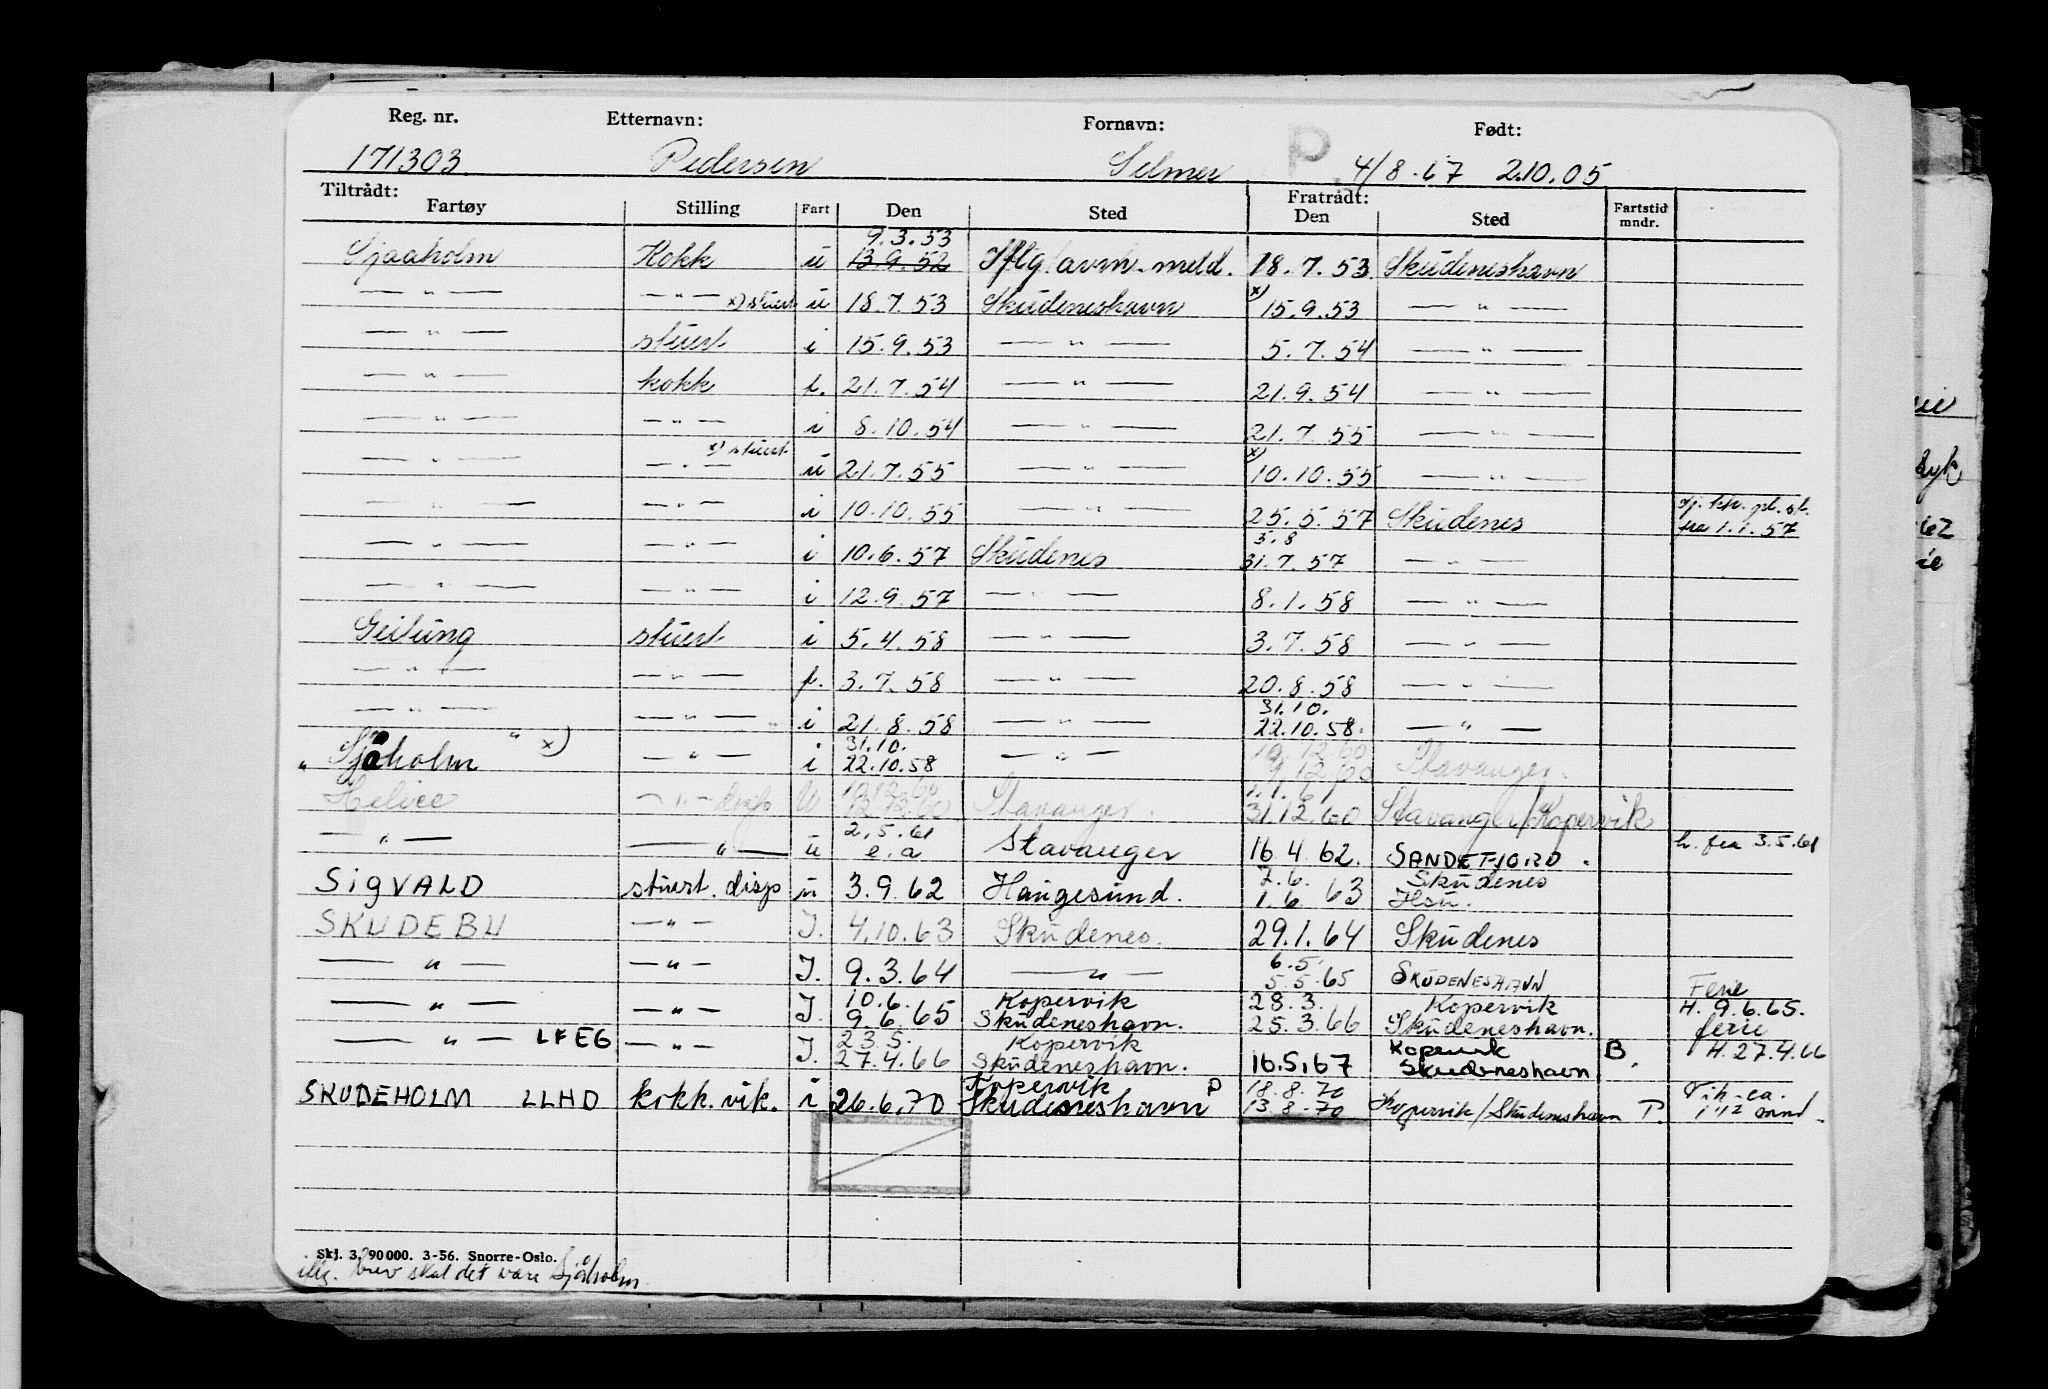 Reg. nr. Etternavn: Fornavn: Født:
171303 Pedersen Selmer P 4/8.67 2.10.05
Tiltrådt: Fratrådt:
Fartøy Stilling Fart Den Sted Den Sted Fartstid mndr.
9.3.53
Sjaaholm Kokk u 13.9.52 Iflg. avm. meld. 18.7.53 Skudeneshavn
— " — — " — x) stuert u 18.7.53 Skudeneshavn x) 15.9.53 — " —
— " — stuert i 15.9.53 — " — 5.7.54 — " —
— " — kokk f. 21.7.54 — " — 21.9.54 — " —
— " — — " — i 8.10.54 — " — 21.7.55 — " —
x) stuert x)
— " — — " — u 21.7.55 — " — 10.10.55 — " —
— " — — " — i 10.10.55 — " — 25.5.57 Skudenes fra 1.1.57
5.8
— " — — " — i 10.6.57 Skudenes 31.7.57 — " —
— " — — " — i 12.9.57 — " — 8.1.58 — " —
Geitung stuert i 5.4.58 — " — 3.7.58 — " —
— " — — " — f. 3.7.58 — " — 20.8.58 — " —
31.10.
— " — — " — i 21.8.58 — " — 22.10.58. — " —
" x) 31.10. 19.12.60
" Sjøholm — " — i 22.10.58 — " — 9.12.60 Stavanger.
1.1.61
Helice — " — disp U Stavanger. 31.12.60 Stavanger/Kopervik
2.5.61
— " — — " — u e.a Stavanger 16.4.62. SANDEFJORD. h. fra 3.5.61
2.6. Skudenes
SIGVALD stuert. disp u 3.9.62 Haugesund. 1.6.63 Hsu.
SKUDEBU — " — I. 4.10.63 Skudenes. 29.1.64 Skudenes
6.5.
— " — — " — I. 9.3.64 — " — 5.5.65 SKUDENESHAVN Ferie
10.6. Kopervik 28.3. Kopervik H. 9.6.65.
— " — — " — I. 9.6.65 Skudeneshavn. 25.3.66 Skudeneshavn. ferie
23.5. Kopervik Kopervik B. H. 27.4.66
— " — LFEG — " — I. 27.4.66 Skudeneshavn. 16.5.67 Skudeneshavn
Kopervik P 18.8.70 Vik. ca.
SKUDEHOLM LLHD kokk. vik. i 26.6.70 Skudeneshavn 13.8.70 Kopervik/Skudeneshavn P. 1 1/2 mnd.
Skj. 3. 90000. 3-56. Snorre-Oslo.
iflg. brev skal det være Sjøholm